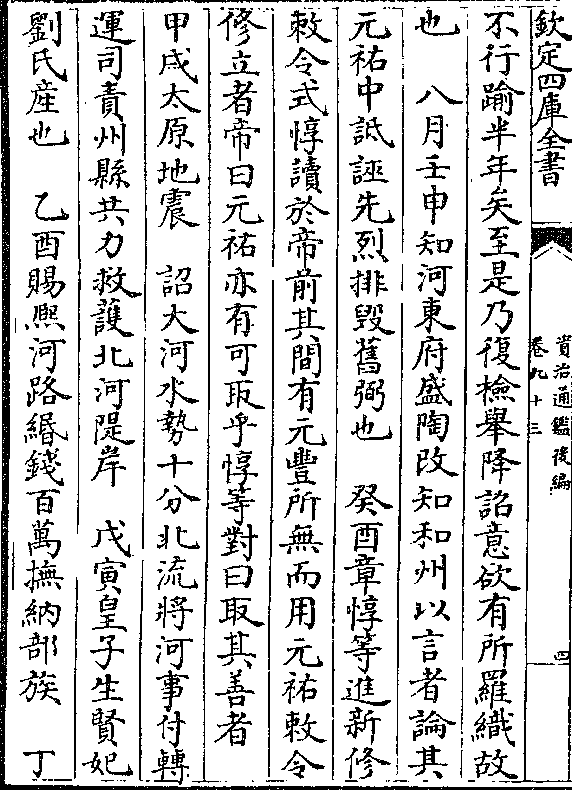 欽定四庫全書
資治通鑑後編
卷九十三
四
不行踰半年矣至是乃復檢舉降詔意欲有所羅織故
也　八月壬申知河東府盛陶改知和州以言者論其
元祐中詆誣先烈排毀舊弼也　癸酉章惇等進新修
敕令式惇讀於帝前其間有元豐所無而用元祐敕令
修立者帝曰元祐亦有可取乎惇等對曰取其善者
甲戌太原地震　詔大河水勢十分北流將河事付轉
運司責州縣共力救護北河隄岸　戊寅皇子生賢妃
劉氏産也　乙酉賜熈河路緡錢百萬撫納部族　丁